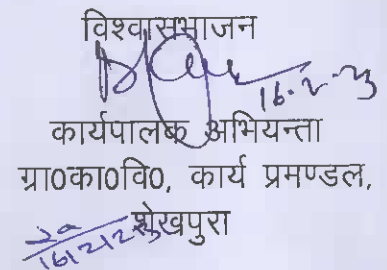 विश्वासभाजन
16.2.23
कार्यपालक अभियन्ता
ग्रा0का0वि0, कार्य प्रमण्डल,
शेखपुरा
16/2/23